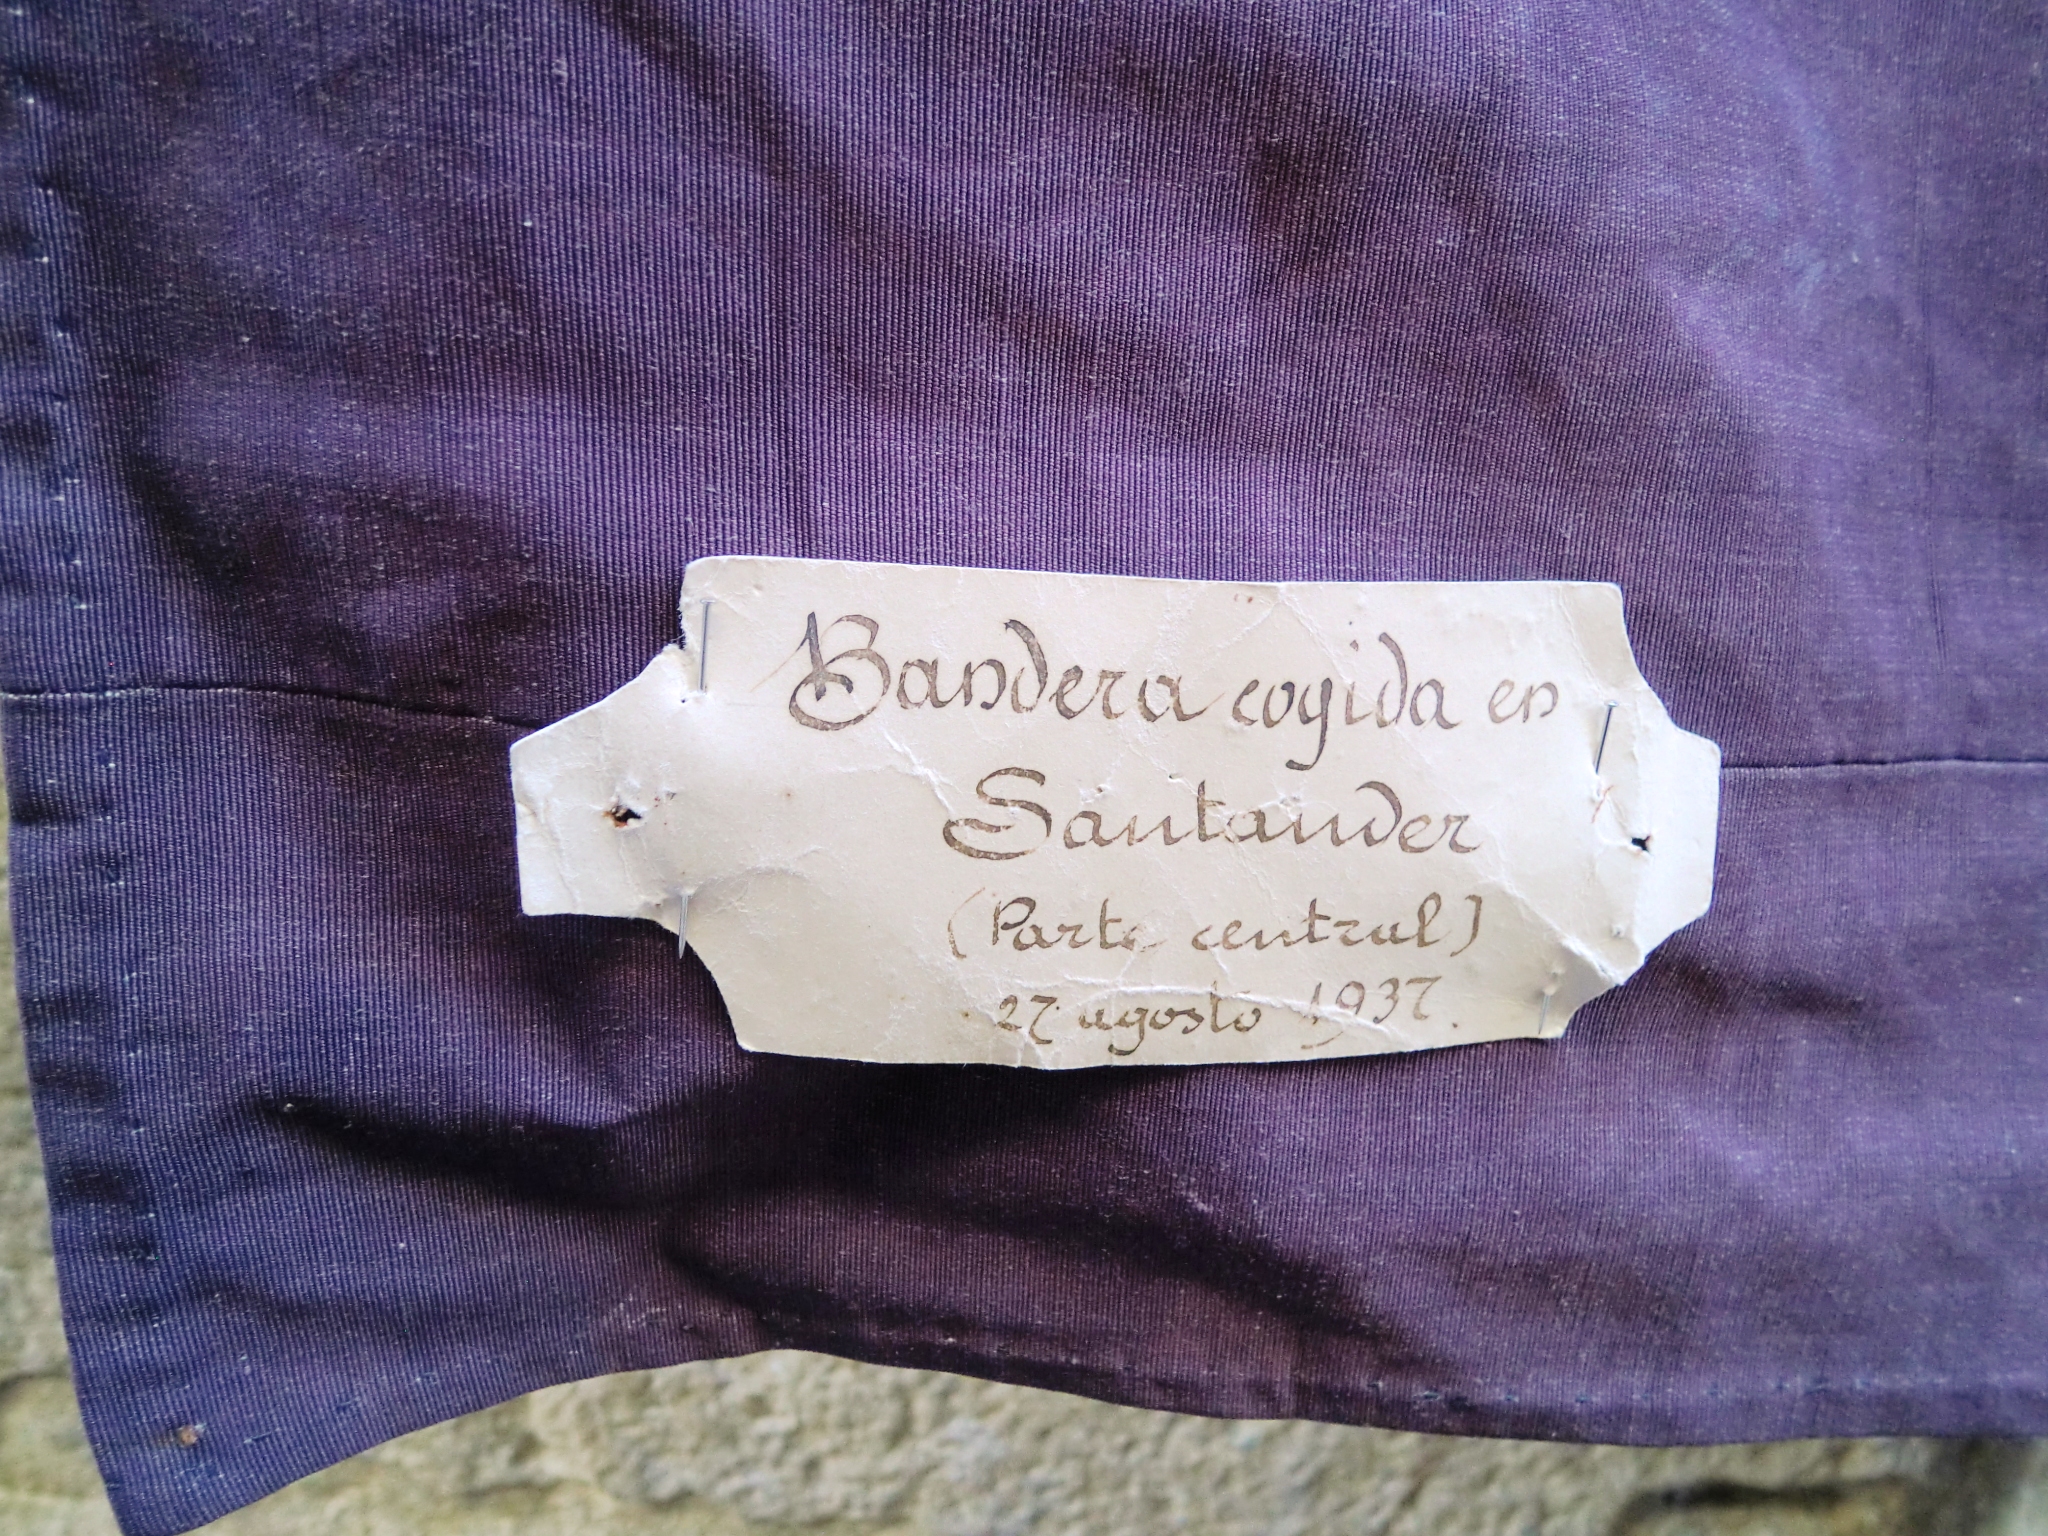 Bandera cogida en
Santander
(Parte central)
27 agosto 1937.